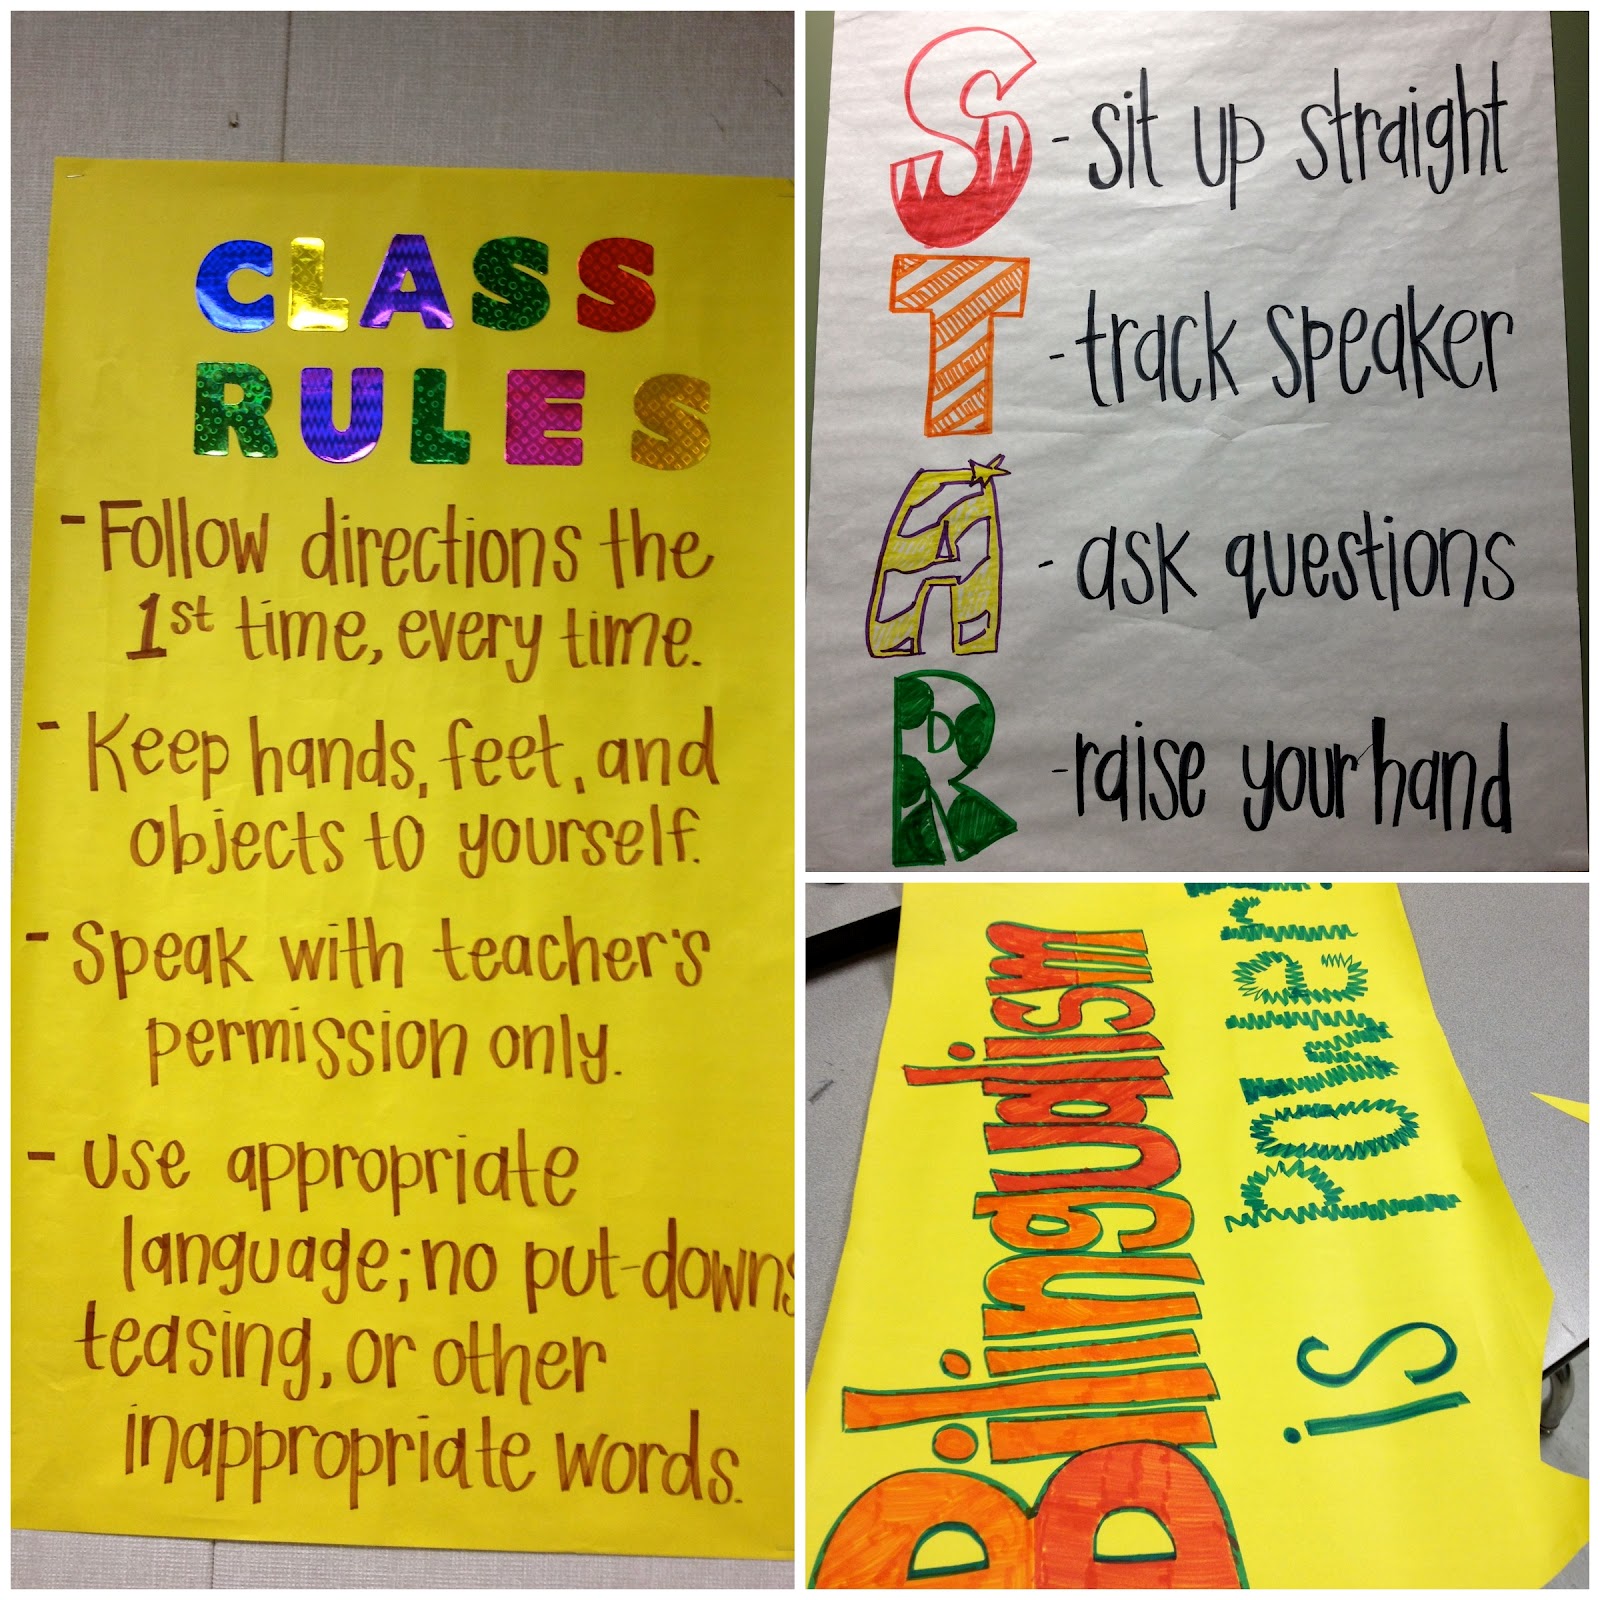 CLASS
RULES
- Follow directions the
1st time, every time.
- Keep hands, feet, and
objects to yourself.
- Speak with teacher's
permission only.
- Use appropriate
language; no put-downs
teasing, or other
inappropriate words.
S - sit up straight
T - track speaker
A - ask questions
R - raise your hand
Bilingualism
is